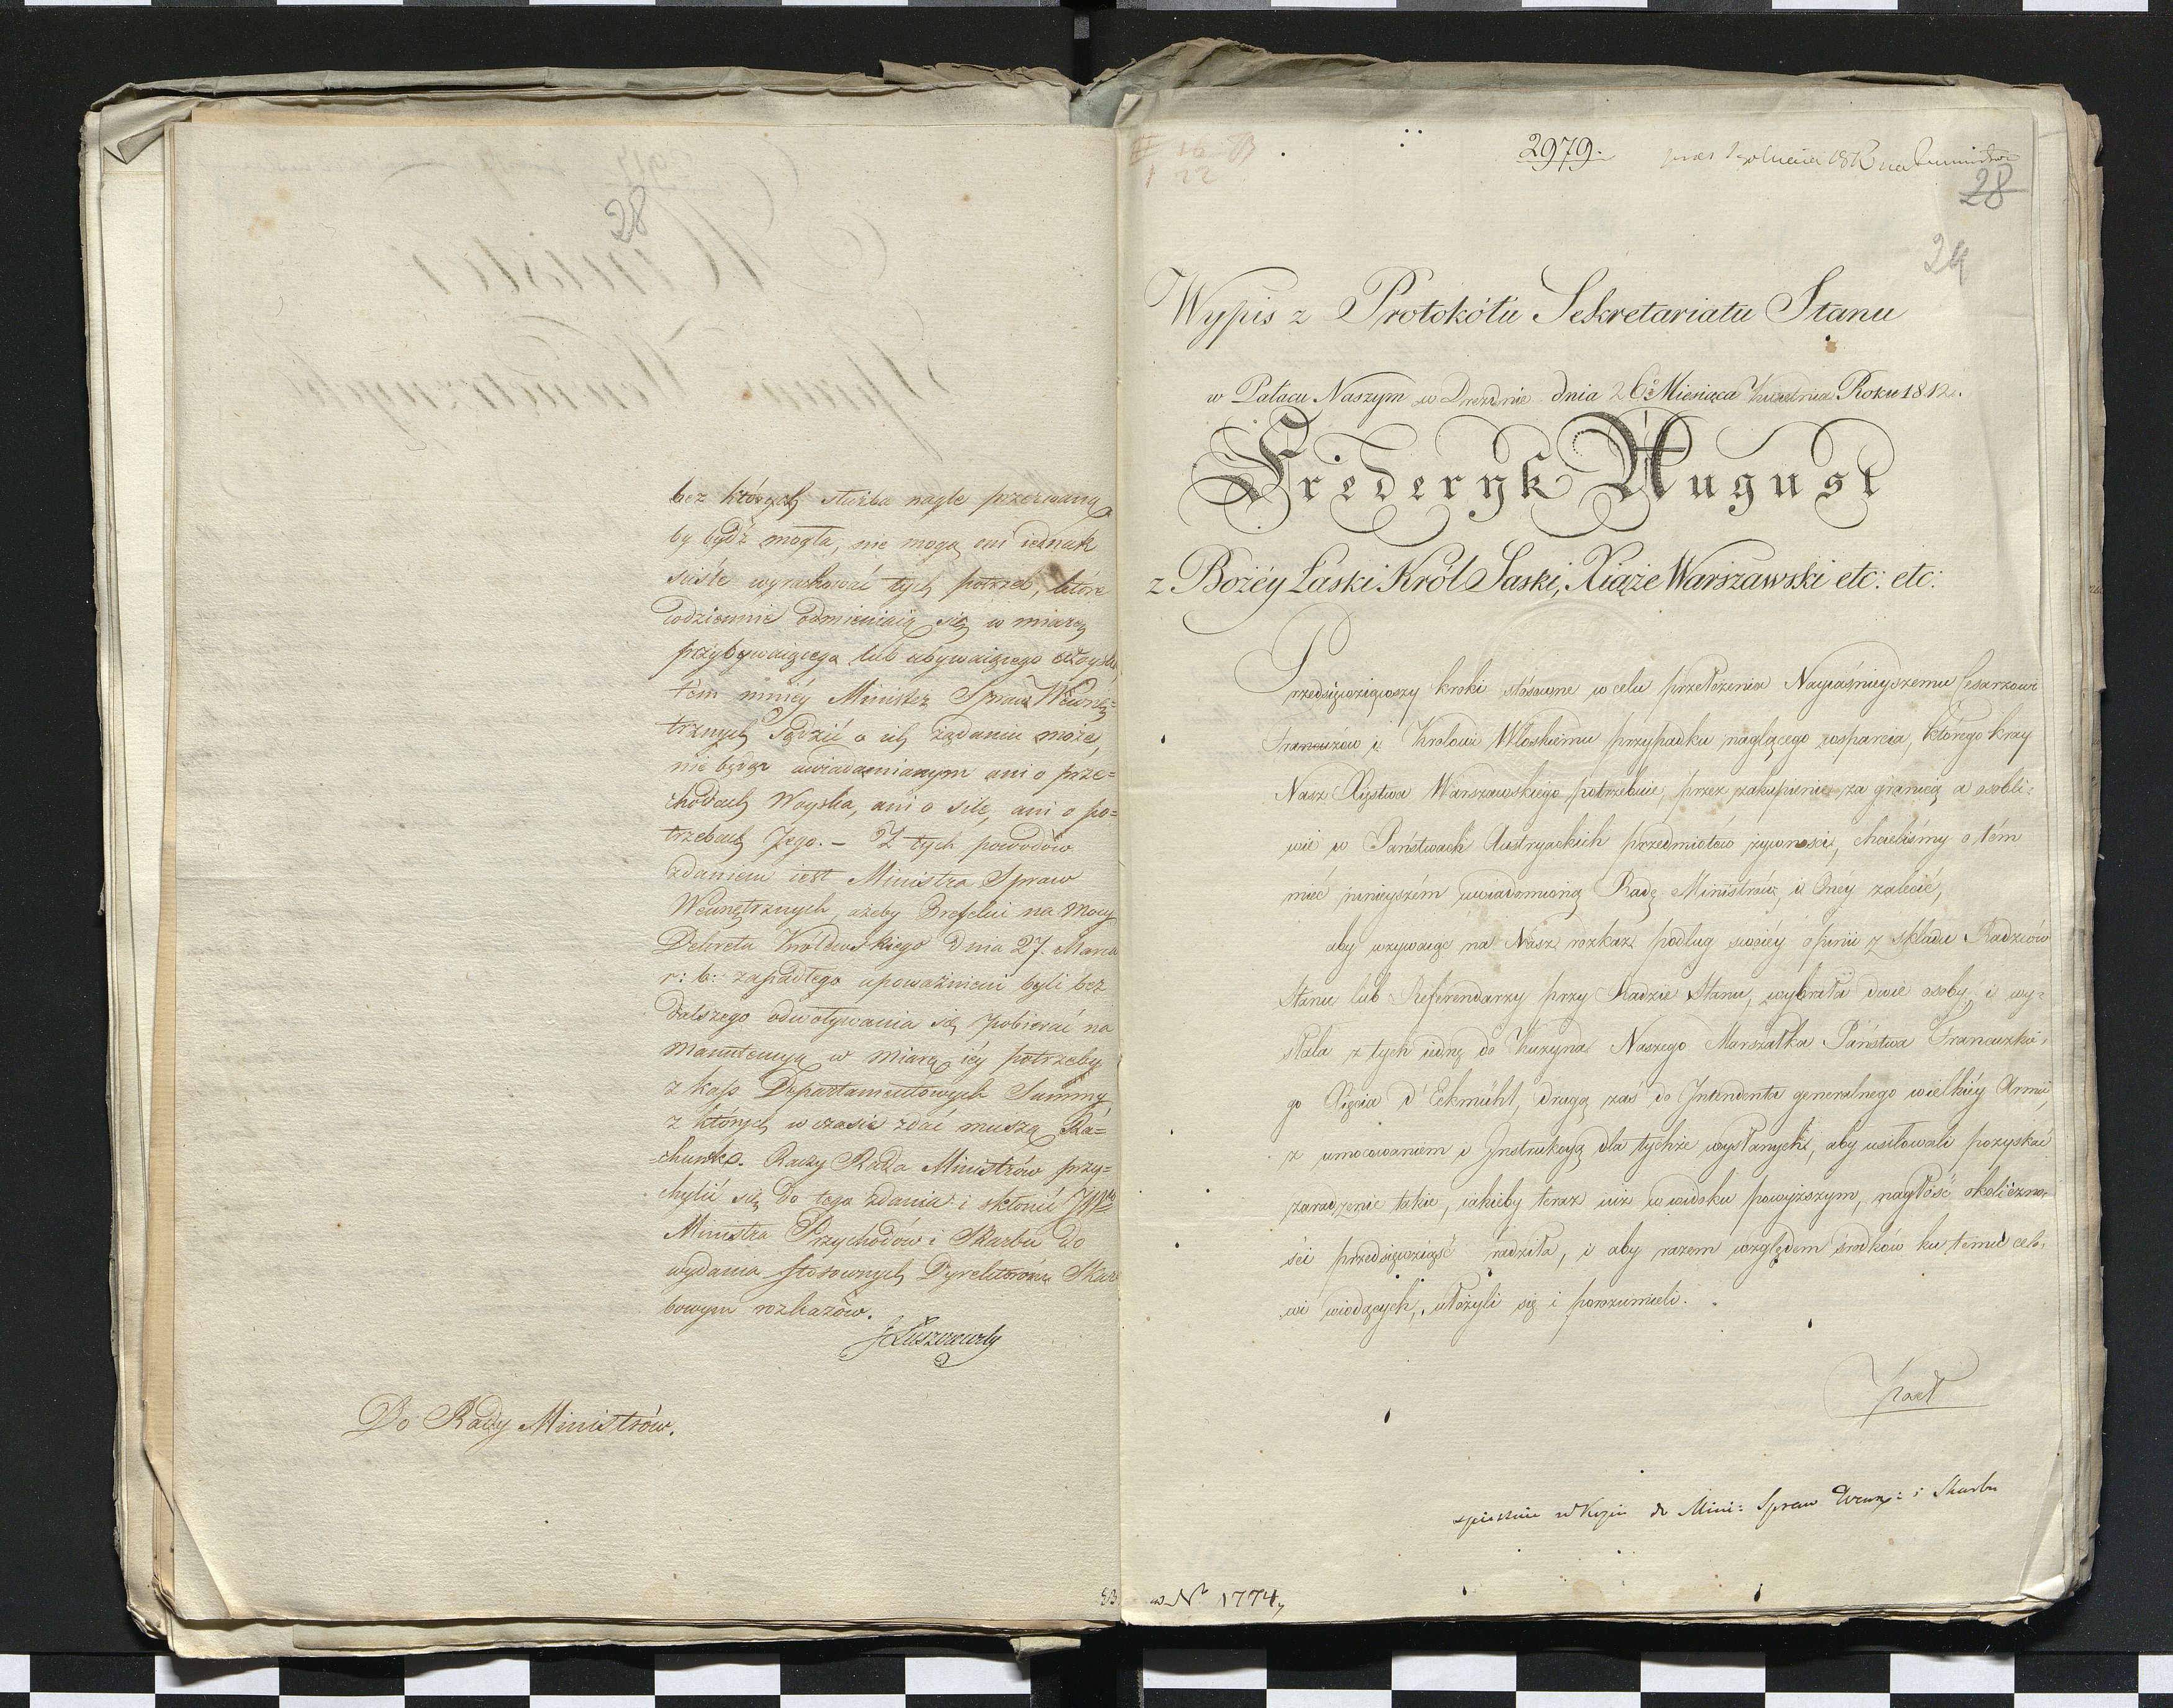 28
bez których służba nagle przerwaną
by bydź mogła, nie mogą oni iednak
ściśle wyrachować tych potrzeb, które
codziennie odmieniaią się w miarę
przybywaiącego lub ubywaiącego woyska
tém mniéy Minister Spraw Wewnę=
trznych Sądzić o ich żądaniu może,
nie będąc uwiadomianym ani o prze=
chodach Woyska, ani o sile, ani o po=
trzebach Jego. – Z tych powodów
zdaniem iest Ministra Spraw
Wewnętrznych, ażeby Prefekci na mocy
Dekretu Królewskiego dnia 27. Marca
r: b: zapadłego upoważnieni byli bez
dalszego odwoływania się pobierać na
manutencyą w miarę iéy potrzeby
z kass Departamentowych Summy
z których w czasie zdać muszą Ra=
chunek. Raczy Rada Ministrów przy=
chylić się do tego zdania i skłonić JW
Ministra Przychodów i Skarbu do
wydania stosownych Dyrektorom Skar
bowym rozkazów.
J Łuszczewsky
Do Rady Ministrów.
2979.
28
24
Wypis z Protokółu Sekretariatu Stanu
w Pałacu Naszym w Dreznie dnia 26 Miesiąca Kwietnia Roku 1812.
Frederyk August
z Bożéy Łaski Król Saski, Xiąże Warszawski etc: etc:
Przedsięwziąwszy kroki stósowne w celu przełożenia Nayiaśnieyszemu Cesarzowi
Francuzów i Królowi Włoskiemu przypadku naglącego wsparcia, którego kray
Nasz Xięstwa Warszawskiego potrzebuie, przez zakupienie za granicą a osobli=
wie w Państwach Austryackich przedmiotów żywności, chcieliśmy o tém
mieć ninieyszém uwiadomioną Radę Ministrów, i Onéy zalecić,
aby wzywaiąc na Nasz rozkaz podług swoiéy opinii z składu Radzców
Stanu lub Referendarzy przy Radzie Stanu, wybrała dwie osoby, i wy=
słała z tych iednę do Kuzyna Naszego Marszałka Państwa Francuzkie=
go Xięcia d'Eckmühl, drugą zaś do Intendenta generalnego wielkiéy Armii,
z umocowaniem i Jnstrukcyą dla tychże wysłanych, aby usiłowali pozyskać
zaradzenie takie, iakieby teraz iuż w widoku powyższym, nagłość okoliczno=
ści przedsięwziąść radziła, i aby razem względem środków ku temu celo=
wi wiodących, ułożyli się i porozumieli.
w Kopii do Mini: Spraw Wewnę: i Skarbu
w Nr 1774,